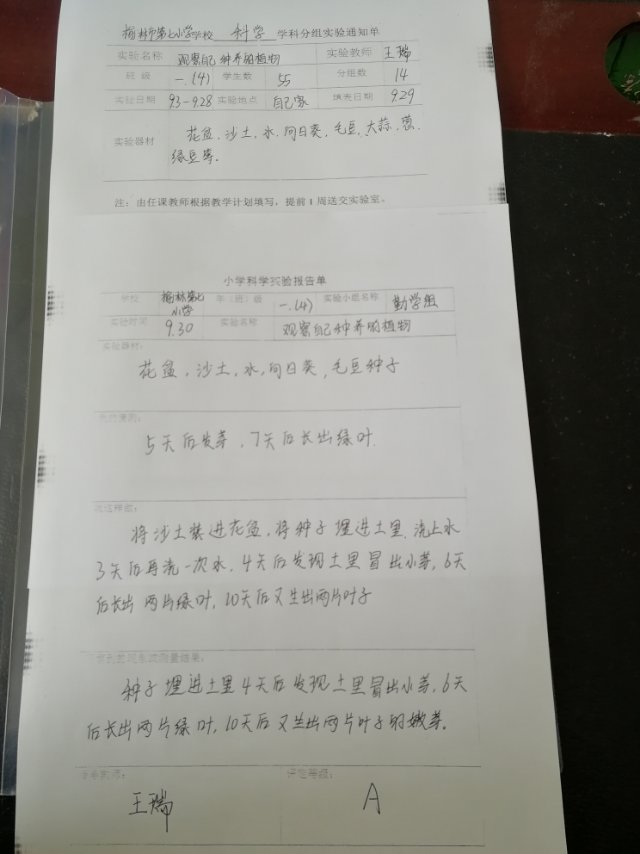 榆林市第七小学学校 科学 学科分组实验通知单
实验名称 观察自己种养的植物 实验教师 王瑞
班 级 一.(4) 学生数 55 分组数 14
实验日期 9.3-9.28 实验地点 自己家 填表日期 9.29
实验器材 花盆、沙土、水、向日葵、毛豆、大蒜、葱、
绿豆等.
注：由任课教师根据教学计划填写，提前1周送交实验室。
小学科学实验报告单
学校 榆林第七小学 年（班）级 一.(4) 实验小组名称 勤学组
实验时间 9.30 实验名称 观察自己种养的植物
实验器材：
花盆，沙土，水，向日葵，毛豆种子
5天后发芽，7天后长出绿叶.
将沙土装进花盆，将种子埋进土里.浇上水
3天后再浇一次水，4天后发现土里冒出小芽，6天
后长出两片绿叶，10天后又生出两片叶子
种子埋进土里4天后发现土里冒出小芽，6天
后长出两片绿叶，10天后又生出两片叶子的嫩芽.
评定等级：
王瑞 A